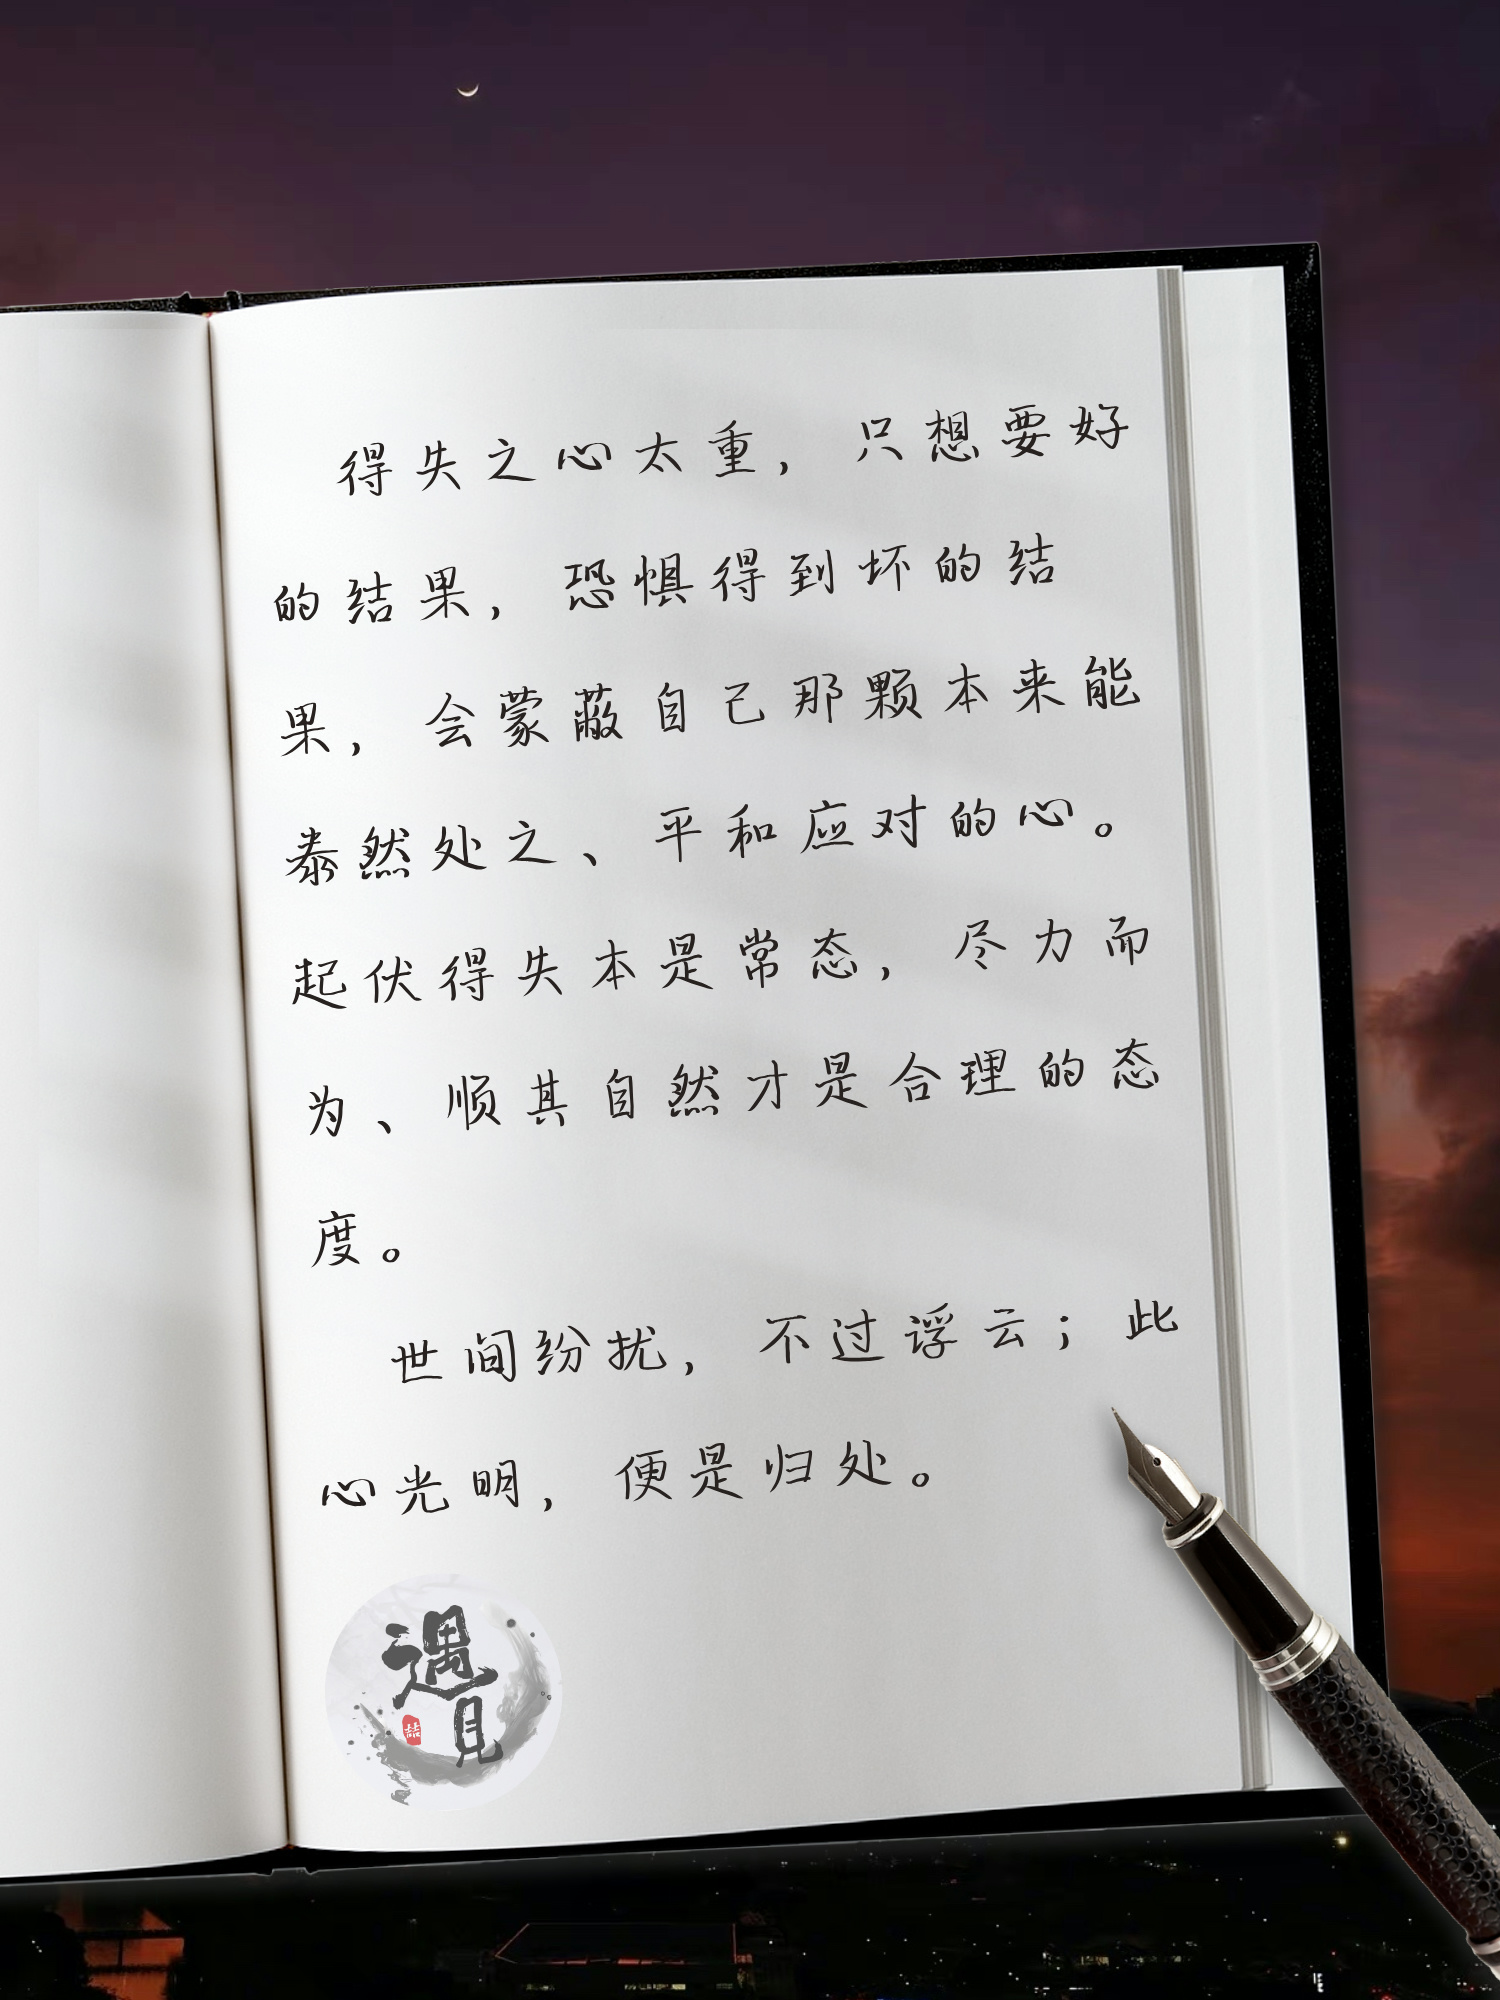 得失之心太重，只想要好
的结果，恐惧得到坏的结
果，会蒙蔽自己那颗本来能
泰然处之、平和应对的心。
起伏得失本是常态，尽力而
为、顺其自然才是合理的态
度。
世间纷扰，不过浮云；此
心光明，便是归处。
遇
見
喆